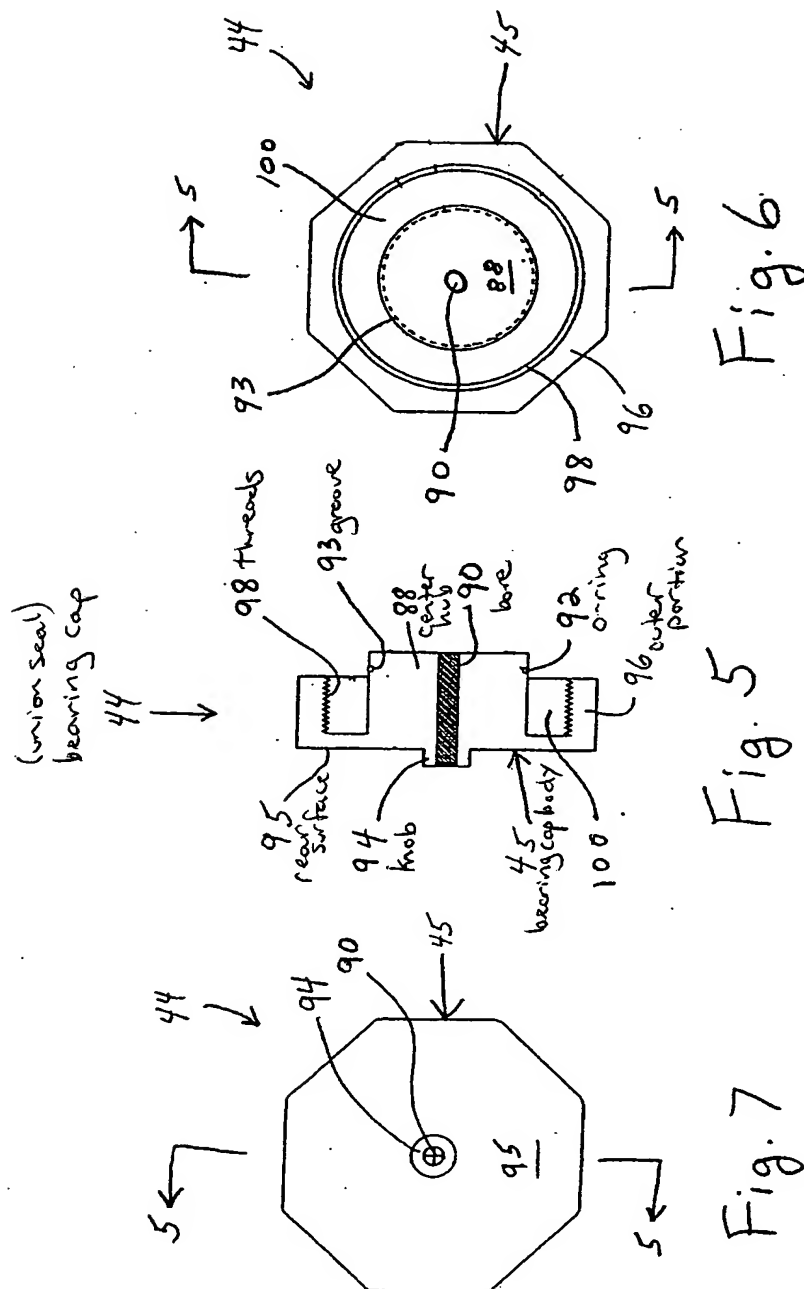 44
5
100
93
90
98
96
88
45
5
Fig. 6
(union seal)
bearing cap
44
98 threads
93 groove
88 center
hub
90
bore
92
o-ring
96 outer
portion
95
rear
surface
94
knob
45
bearing cap body
100
Fig. 5
44
5
94
90
45
95
5
Fig. 7